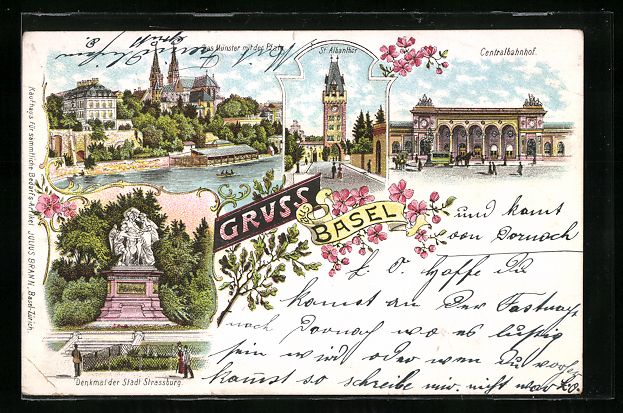 Das Münster mit der Pfalz.
St. Albanthor
Centralbahnhof.
Kaufhaus für sämmtliche Bedarfs-Artikel JULIUS BRANN, Basel-Zürich.
GRUSS
BASEL
Denkmal der Stadt Strassburg.
und komt
von Dornach
Hoffe du
komst an der Fastnacht
nach Dornach wo es lustig
sein wird oder wen du vorher
komst so schreibe mir. nicht war